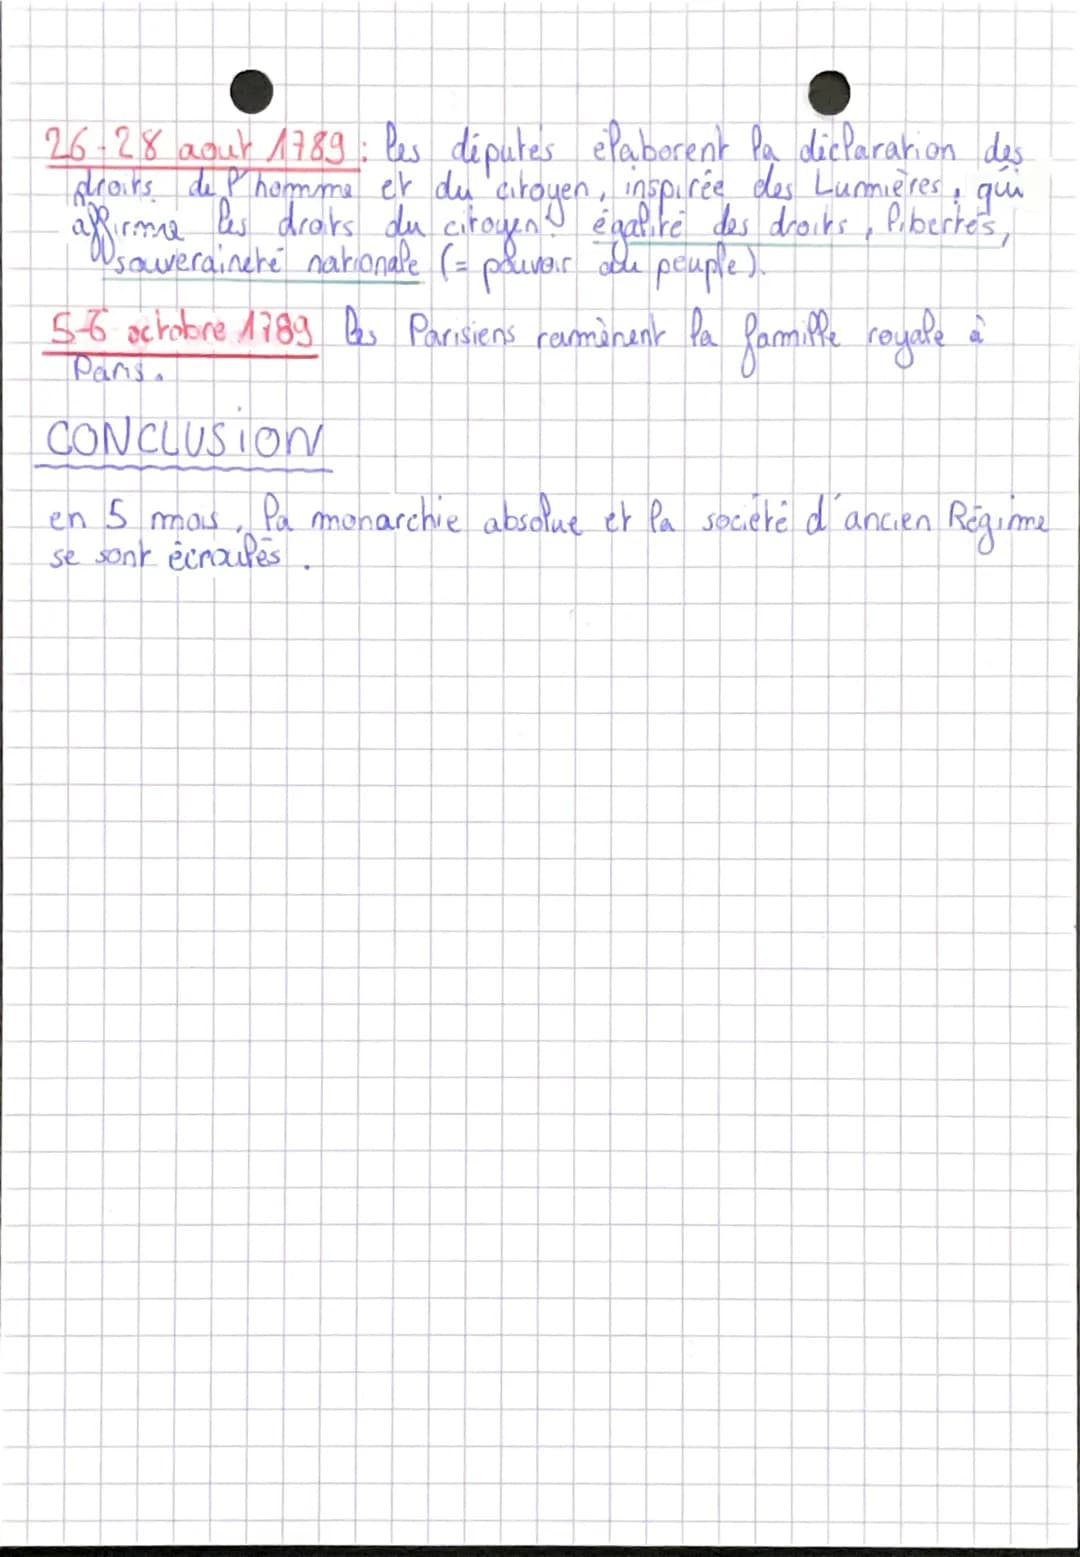 26-28 aout 1789 : les députés élaborent la déclaration des
droits de l'homme et du citoyen, inspirée des Lumières, qui
affirme les droits du citoyen : égalité des droits, libertés,
souveraineté nationale (= pouvoir du peuple).
5-6 octobre 1789 les Parisiens ramènent la famille royale à
Paris.
CONCLUSION
en 5 mois, la monarchie absolue et la société d'ancien Régime
se sont écroulés.